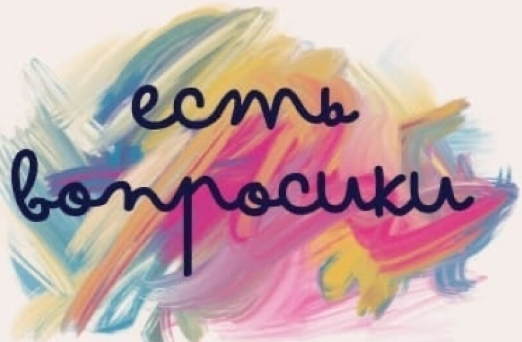 есть
вопросики